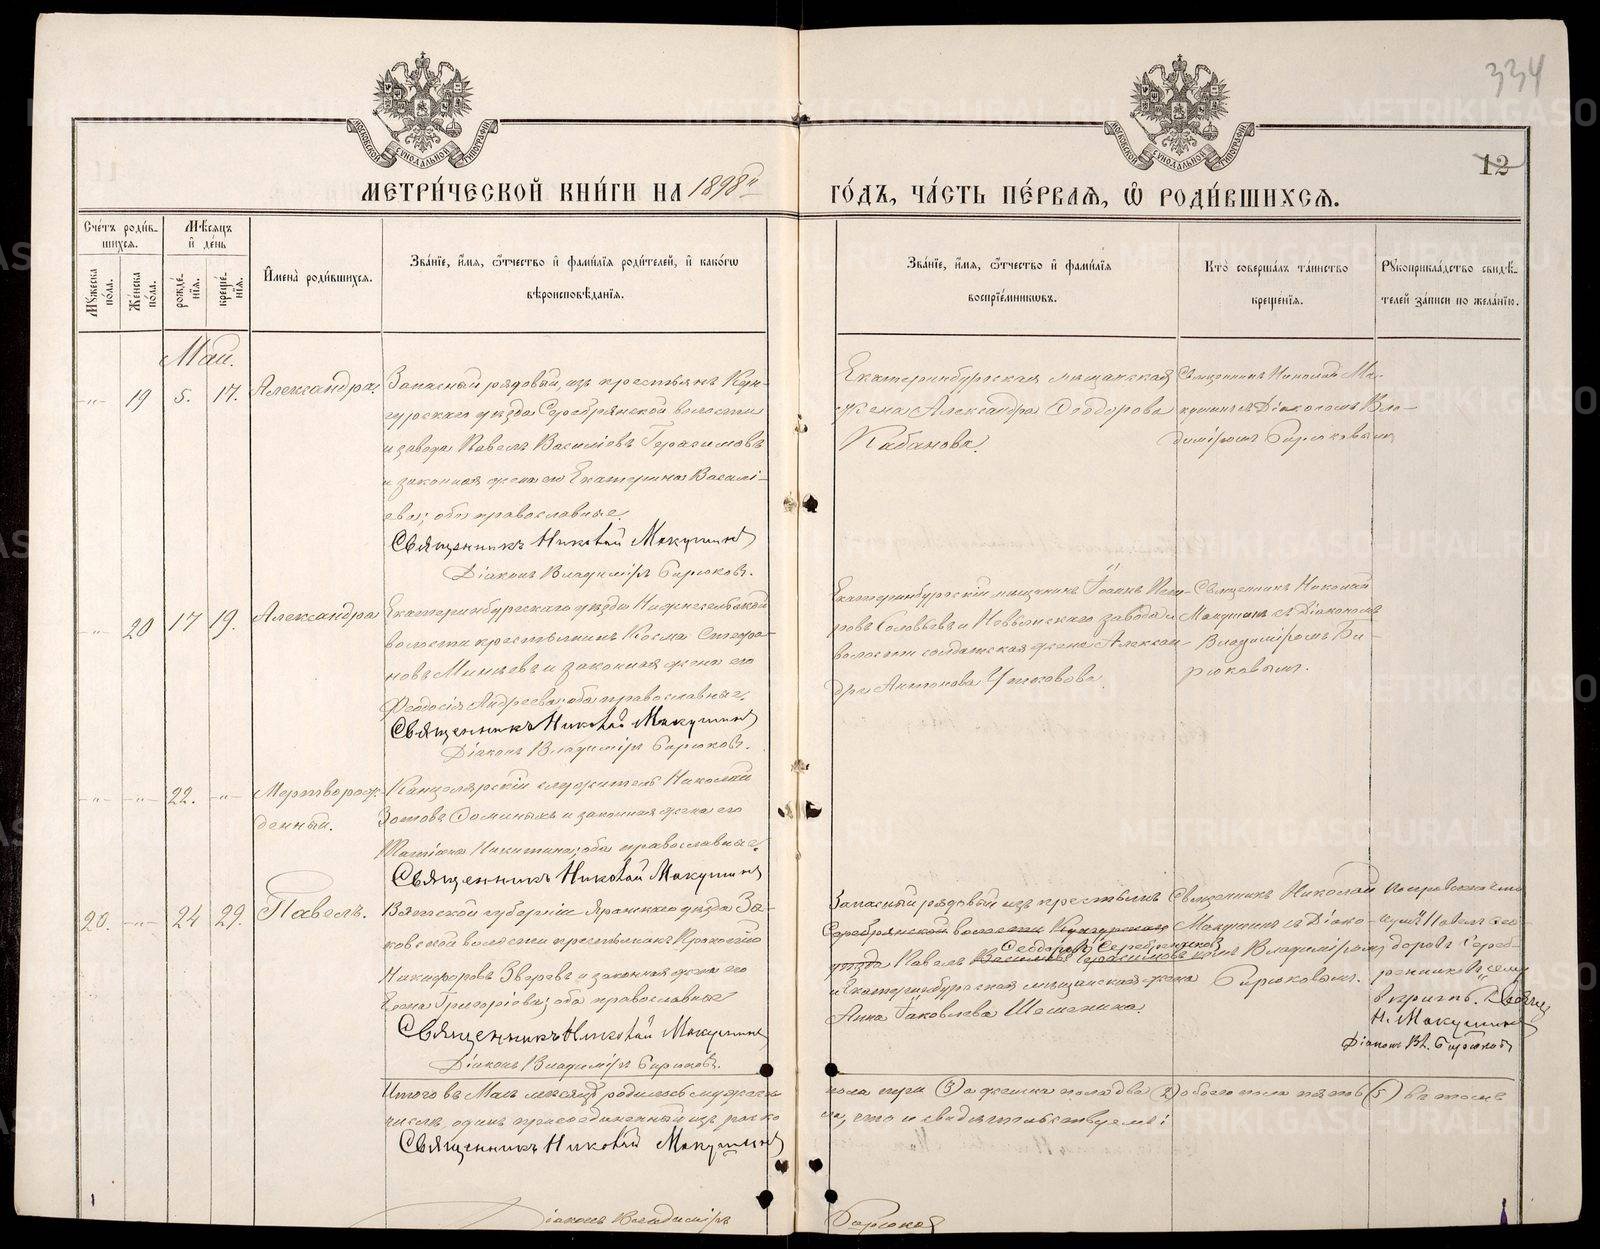 334
12
МОСКОВСКОЙ СУНОДАЛЬНОЙ ТИПОГРАФІИ
МОСКОВСКОЙ СУНОДАЛЬНОЙ ТИПОГРАФІИ
МЕТРИ́ЧЕСКОЙ КНИ́ГИ НА 1898й ГО́ДЪ, ЧА́СТЬ ПЕ́РВАЯ, Ѡ҆ РОДИ́ВШИХСЯ.
Сче́тъ роди́вшихся.
Мѣ́сяцъ и҆ де́нь
Мꙋ́жеска по́ла.
Же́нска по́ла.
рожде́нїѧ.
креще́нїѧ.
И҆мена̀ роди́вшихся.
Зва́нїе, и҆́мѧ, ѻ҆́тчество и҆ фами́лїѧ роди́телей, и҆ како́гѡ
вѣроисповѣ́данїѧ.
Зва́нїе, и҆́мѧ, ѻ҆́тчество и҆ фами́лїѧ
воспрїе́мникѡвъ.
Кто̀ соверша́лъ та́инство
креще́нїѧ.
Рꙋкоприкла́дство свидѣ́-
телей за́писи по жела́нїю.
Май.
-"- 19 5. 17. Александра.
Запасный рядовый, изъ крестьянъ Кун-
гурскаго уѣзда Серебрянской волости
и завода Павелъ Василіевъ Герасимовъ
и законная жена его Екатерина Василі-
ева; оба православные.
Священникъ Николай Макушинъ
Діаконъ Владиміръ Бирюковъ.
Екатеринбургская мѣщанская
жена Александра Ѳеодорова
Кабанова.
Священникъ Николай Ма-
кушинъ съ Діакономъ Вла-
диміромъ Бирюковымъ
-"- 20 17 19. Александра
Екатеринбургскаго уѣзда Нижнесельской
волости крестьянинъ Косма Стефа-
новъ Минѣевъ и законная жена его
Ѳеодосія Андреева; оба православные.
Священникъ Николай Макушинъ
Діаконъ Владиміръ Бирюковъ.
Екатеринбургскій мѣщанинъ Іоаннъ Пет-
ровъ Соловьевъ и Невьянскаго завода и
волости солдатская жена Алексан-
дра Антонова Ушковова.
Священникъ Николай
Макушинъ съ Діакономъ
Владиміромъ Би-
рюковымъ.
-"- -"- 22. -"- Мертворож-
денный.
Канцелярскій служитель Николай
Зотовъ Ѳоминыхъ и законная жена его
Татіана Никитина; оба православные.
Священникъ Николай Макушинъ
20. -"- 24 29. Павелъ.
Вятской губерніи Яранскаго уѣзда За-
ковской волости крестьянинъ Прокопій
Никифоровъ Звѣревъ и законная жена его
Елена Григоріева; оба православные
Священникъ Николай Макушинъ
Діаконъ Владиміръ Бирюковъ.
Запасный рядовый изъ крестьянъ
Серебрянской волости Кунгурскаго
Ѳеодоровъ Серебренниковъ
уѣзда Павелъ Василіевъ Герасимовъ
и Екатеринбургская мѣщанская жена
Анна Іаковлева Шешенина.
Священникъ Николай
Макушинъ съ Діако-
номъ Владиміромъ
Бирюковымъ.
По
Павелъ Ѳео-
доровъ Сереб-
ренниковъ
Н. Макушинъ
Діаконъ Вл. Бирюковъ
Итого въ Маѣ мѣсяцѣ родилось мужеска пола три (3) а женска пола два (2) обоего пола пять (5) въ томъ
числѣ одинъ присоединенный изъ
что и свидѣтельствуемъ:
Священникъ Николай Макушинъ
Діаконъ Владиміръ Бирюковъ
METRIKI.GASO-URAL.RU